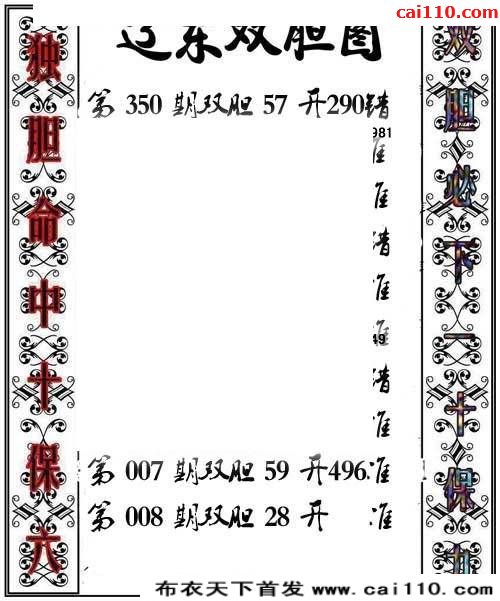 cai110.com
辽东双胆图
独胆命中十保六
第 350 期双胆 57 开290错
981
准
准
错
准
49
准
错
准
第 007 期双胆 59 开496准
第 008 期双胆 28 开 准
双胆必下一十保九
布衣天下首发 www.cai110.com